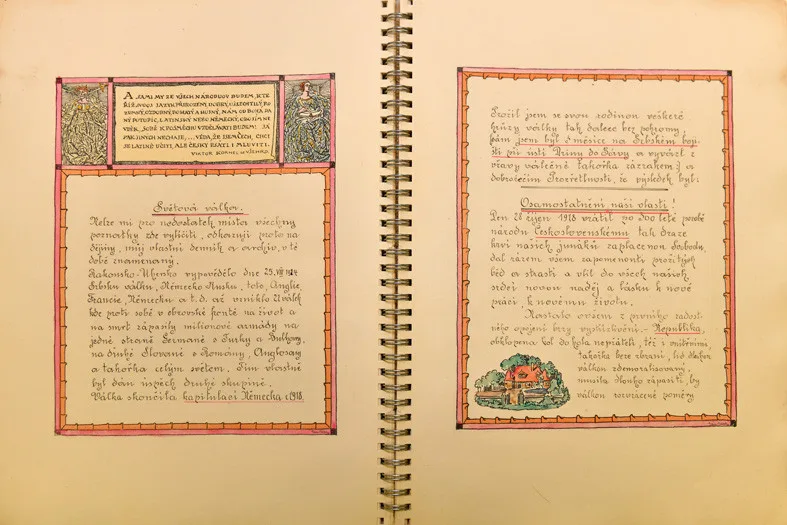 A SAMI MY ZE VŠECH NÁRODUOV BUDEM, KTE
ŘÍŽ SVUOJ JAZYK PŘIROZENÝ, DOBRÝ, UŠLECHTILÝ, RO
ZUMNÝ, OZDOBNÝ, BOHATÝ A HUJNÝ, NÁM OD BOHA DA
NÝ POTUPÍC, LATINSKÝ NEBO NĚMECKÝ, OBOJÍM NE
VDĚK, SOBĚ K POSMĚCHU VZDĚLÁVATI BUDEM? JÁ
PAK JINÝCH NECHAJE, ... VĚDA, ŽE JSEM ČECH, CHCI
SE LATINĚ UČITI, ALE ČESKY PSÁTI I MLUVITI.
VIKTOR KORNEL ZE VŠEHRD.
Světová válka.
Nelze mi pro nedostatek místa všechny
poznatky zde vylíčiti, odkazuji proto na
dějiny, můj vlastní denník a archiv, v té
době znamenaný.
Rakousko-Uhersko vypovědělo dne 25.VII 1914
Srbsku válku, Německo Rusku, toto, Anglie,
Francie, Německu a t.d. až vznikla válka
kde proti sobě v obrovské frontě na život a
na smrt zápasily milionové armády na
jedné straně Germané s Turky a Bulhary,
na druhé Slované s Romány, Anglosasy
a takořka celým světem. Tím vlastně
byl dán úspěch druhé skupině.
Válka skončila kapitulací Německa r. 1918.
Prožil jsem se svou rodinou veškeré
hrůzy války tak dalece bez pohromy,
sám jsem byl měsíce na Srbském boji
šti při ústí Driny do Sávy a vyvázl z
vřavy válečné takořka zázrakem a
dobrotěním Prozřetelnosti, že výsledek byl:
Osamostatnění naší vlasti!
Den 28 říjen 1918 vrátil po 300 leté porobě
národu Československému tak draze
krví našich junáků zaplacenou svobodu,
dal rázem všem zapomenouti prožitých
běd a strastí a vlil do všech našich
srdcí novou naději a lásku k nové
práci k novému životu.
Nastalo ovšem z prvního radost
ného opojení brzy vystřízlivění. Republika,
obklopena kol do kola nepřáteli, též i vnitřními,
takořka beze zbraní, lid
válkou zdemoralisovaný,
musila těžko zápasiti, by
válkou rozvrácené poměry